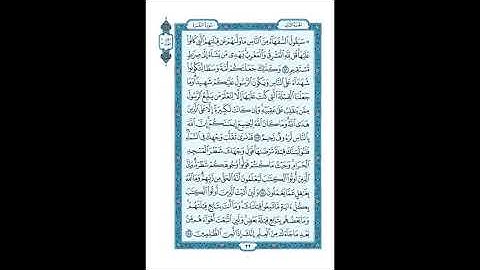 الجزء الثاني سورة البقرة
۞ سَيَقُولُ السُّفَهَاءُ مِنَ النَّاسِ مَا وَلَّىٰهُمْ عَن قِبْلَتِهِمُ الَّتِي كَانُوا
عَلَيْهَا قُل لِّلَّهِ الْمَشْرِقُ وَالْمَغْرِبُ يَهْدِي مَن يَشَاءُ إِلَىٰ صِرَٰطٍ
مُّسْتَقِيمٍ ١٤٢ وَكَذَٰلِكَ جَعَلْنَٰكُمْ أُمَّةً وَسَطًا لِّتَكُونُوا
شُهَدَاءَ عَلَى النَّاسِ وَيَكُونَ الرَّسُولُ عَلَيْكُمْ شَهِيدًا وَمَا
جَعَلْنَا الْقِبْلَةَ الَّتِي كُنتَ عَلَيْهَا إِلَّا لِنَعْلَمَ مَن يَتَّبِعُ الرَّسُولَ
مِمَّن يَنقَلِبُ عَلَىٰ عَقِبَيْهِ وَإِن كَانَتْ لَكَبِيرَةً إِلَّا عَلَى الَّذِينَ
هَدَى اللَّهُ وَمَا كَانَ اللَّهُ لِيُضِيعَ إِيمَٰنَكُمْ إِنَّ اللَّهَ
بِالنَّاسِ لَرَءُوفٌ رَّحِيمٌ ١٤٣ قَدْ نَرَىٰ تَقَلُّبَ وَجْهِكَ فِي السَّمَاءِ
فَلَنُوَلِّيَنَّكَ قِبْلَةً تَرْضَىٰهَا فَوَلِّ وَجْهَكَ شَطْرَ الْمَسْجِدِ
الْحَرَامِ وَحَيْثُ مَا كُنتُمْ فَوَلُّوا وُجُوهَكُمْ شَطْرَهُ وَإِنَّ
الَّذِينَ أُوتُوا الْكِتَٰبَ لَيَعْلَمُونَ أَنَّهُ الْحَقُّ مِن رَّبِّهِمْ وَمَا اللَّهُ
بِغَٰفِلٍ عَمَّا يَعْمَلُونَ ١٤٤ وَلَئِنْ أَتَيْتَ الَّذِينَ أُوتُوا الْكِتَٰبَ
بِكُلِّ ءَايَةٍ مَّا تَبِعُوا قِبْلَتَكَ وَمَا أَنتَ بِتَابِعٍ قِبْلَتَهُمْ
وَمَا بَعْضُهُم بِتَابِعٍ قِبْلَةَ بَعْضٍ وَلَئِنِ اتَّبَعْتَ أَهْوَاءَهُم مِّن
بَعْدِ مَا جَاءَكَ مِنَ الْعِلْمِ إِنَّكَ إِذًا لَّمِنَ الظَّٰلِمِينَ ١٤٥
٢٢